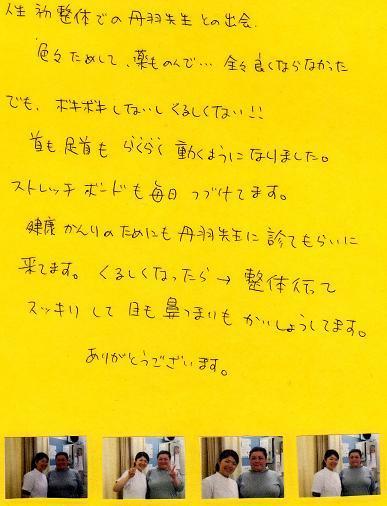 人生初整体での丹羽先生との出会。
色々ためして、薬ものんで…全々良くならなかった
でも、ボキボキしないしくるしくない!!
首も足首もらくらく動くようになりました。
ストレッチボードも毎日つづけてます。
健康かんりのためにも丹羽先生に診てもらいに
来てます。くるしくなったら→整体行って
スッキリして目も鼻つまりもかいしょうしてます。
ありがとうございます。